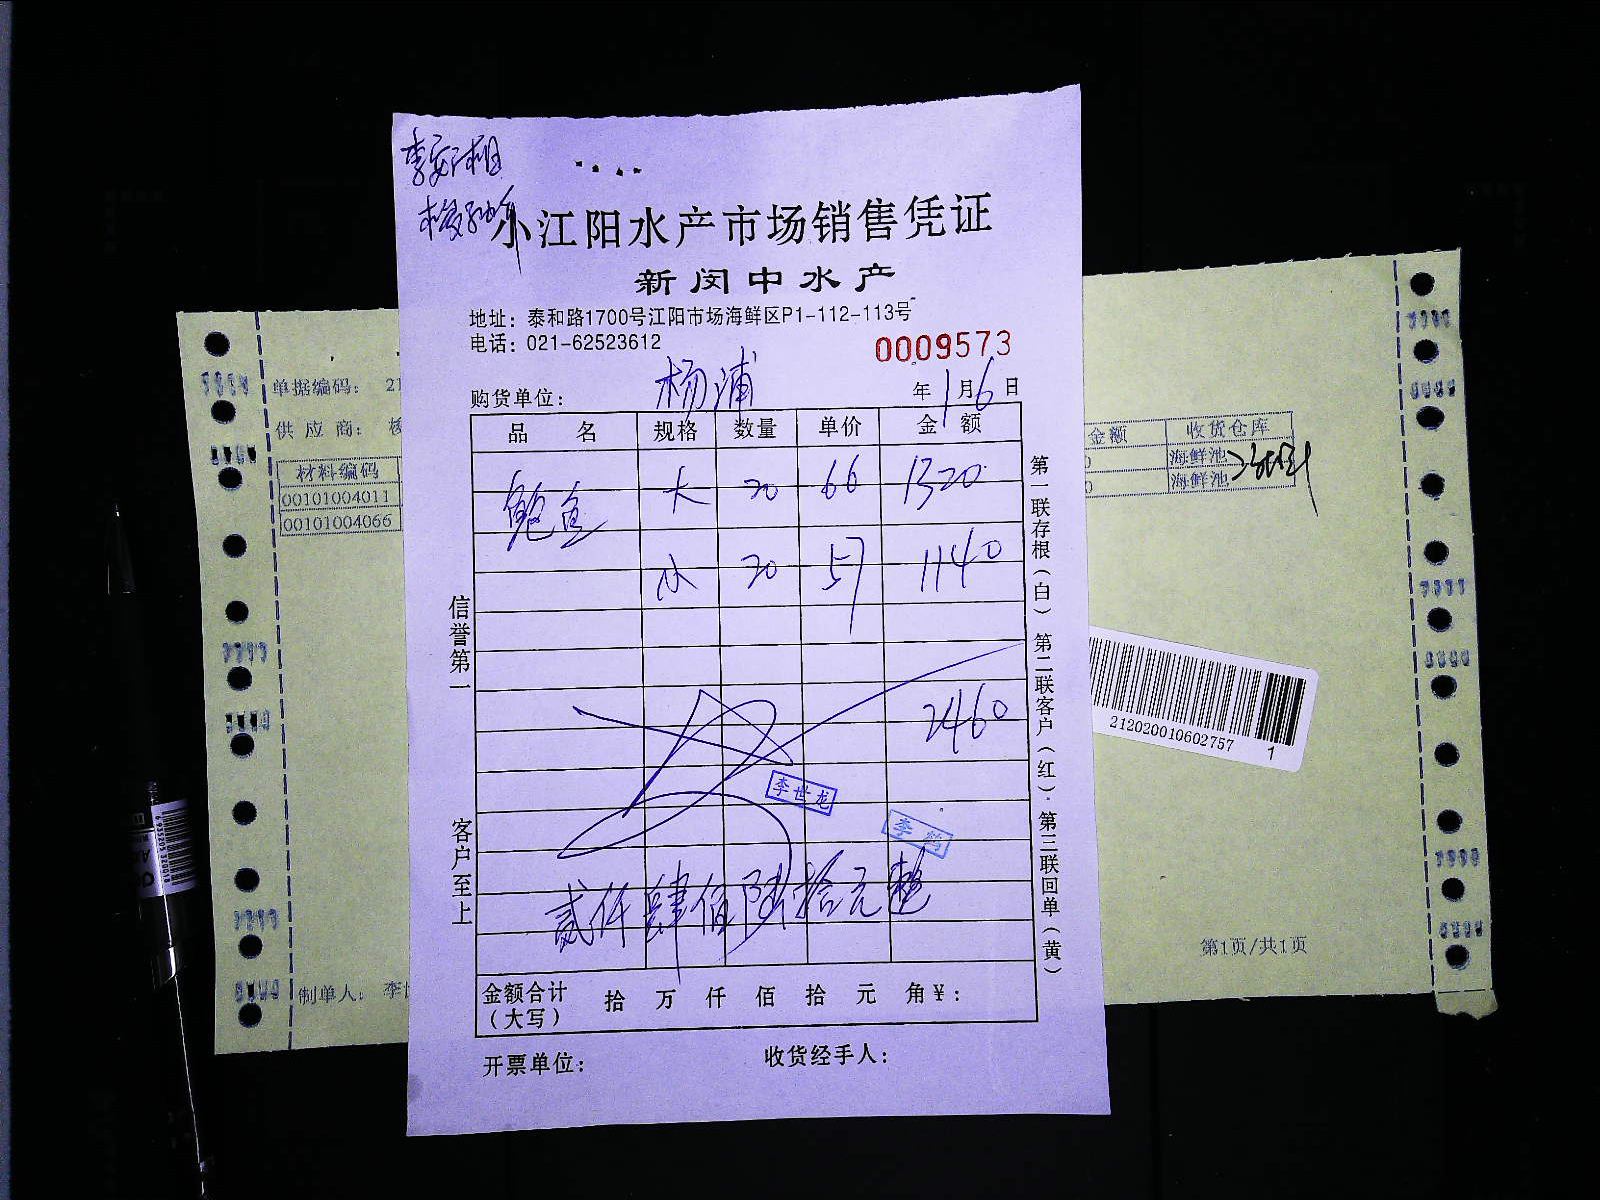 小江阳水产市场销售凭证
新闵中水产
地址：泰和路1700号江阳市场海鲜区P1-112-113号
电话：021-62523612
0009573
购货单位： 杨浦 年1月6日
品 名 规格 数量 单价 金 额
鲍鱼 大 20 66 1320
小 20 57 1140
2460
李世龙
李鹤
贰仟肆佰陆拾元整
金额合计（大写） 拾 万 仟 佰 拾 元 角¥：
开票单位： 收货经手人：
信誉第一 客户至上
第一联存根（白） 第二联客户（红）. 第三联回单（黄）
单据编码： 21
供 应 商：
材料编码
00101004011
00101004066
制单人： 李世
金额 收货仓库
0 海鲜池
0 海鲜池
212020010602757
1
第1页/共1页